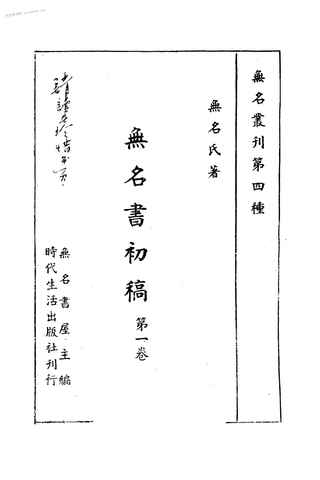 無名叢刊第四種
無名氏著
無名書初稿 第一卷
無名書屋主編
時代生活出版社刊行